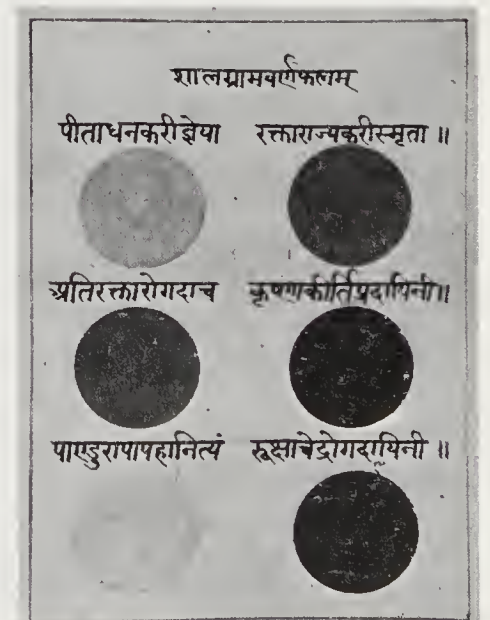 शालग्रामवर्णफलम्
पीताधनकरीज्ञेया रक्ताराज्यकरीस्मृता ॥
अतिरक्तारोगदाच कृष्णाकीर्तिप्रदायिनी ॥
पाण्डुरापापहानित्यं रूक्षाचेद्रोगदायिनी ॥